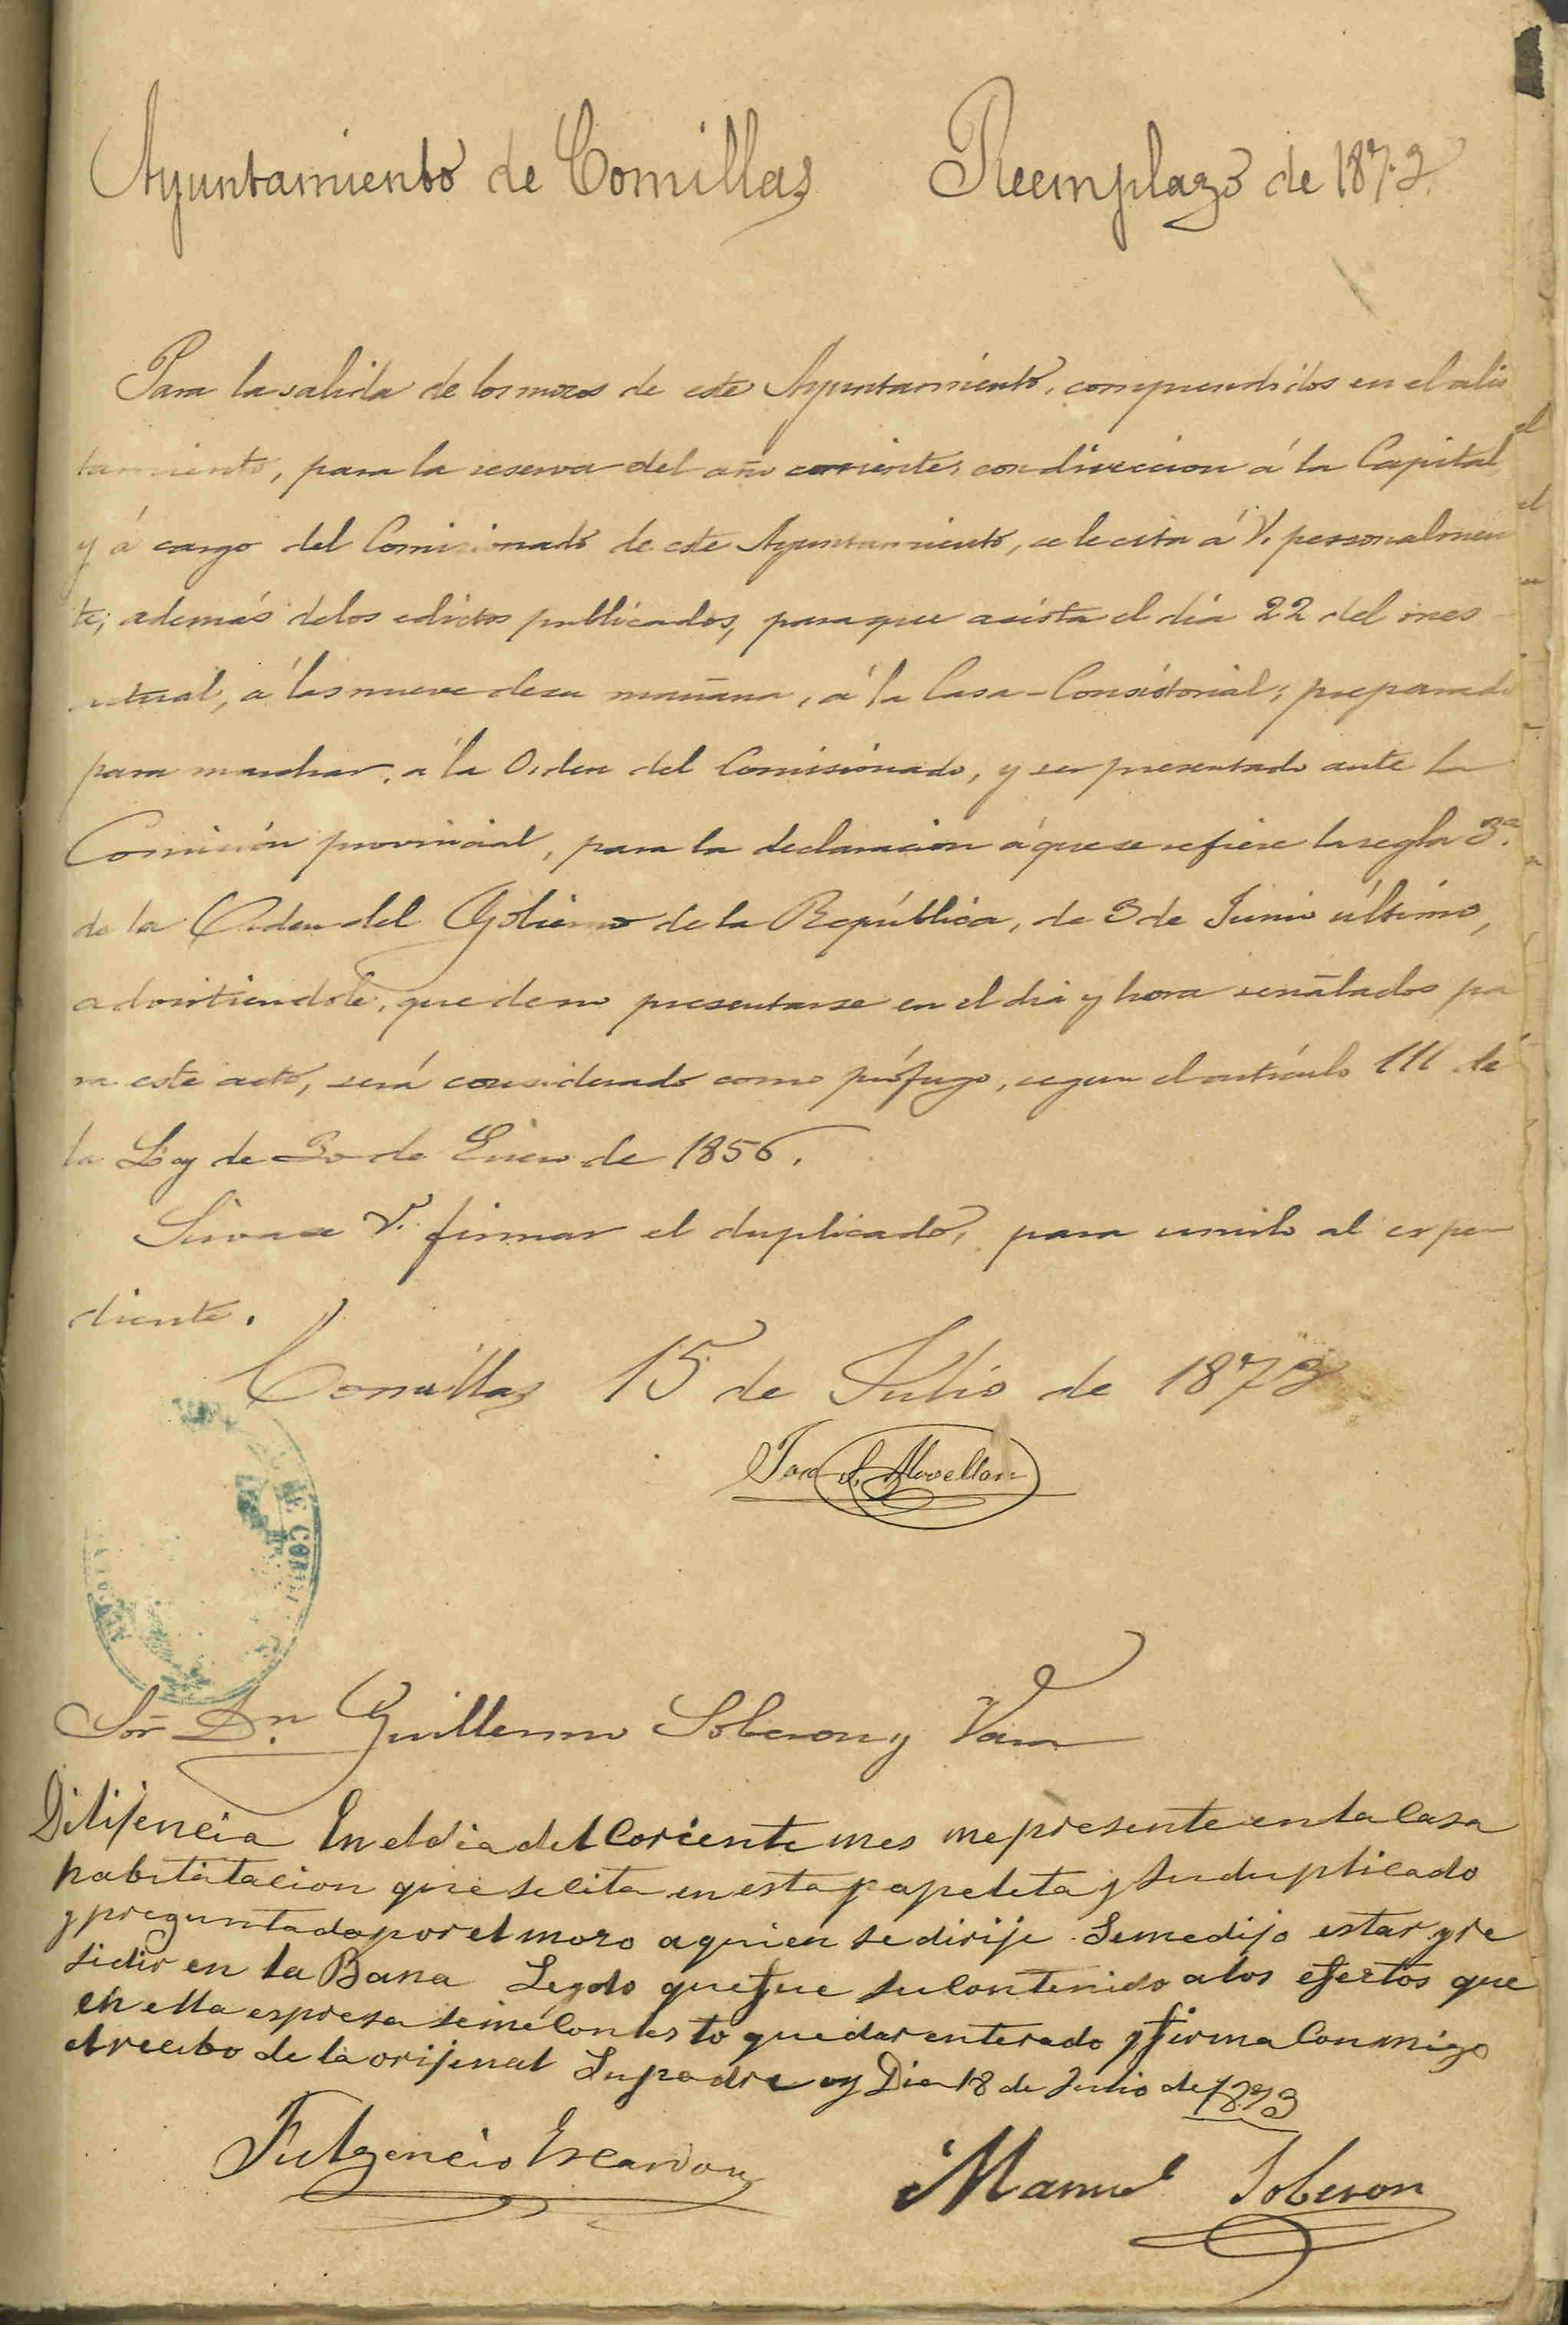 Ayuntamiento de Comillas Reemplazo de 1873.
Para la salida de los mozos de este Ayuntamiento, comprendidos en el alis
tamiento, para la reserva del año corriente, con direccion á la Capital
y á cargo del Comisionado de este Ayuntamiento, se le cita á V. personalmen
te, además de los edictos publicados, para que asista el dia 22 del mes
actual, á las nueve de su mañana, á la Casa-Consistorial, preparado
para marchar, á la Orden del Comisionado, y ser presentado ante la
Comisión provincial, para la declaracion á que se refiere la regla 3ª.
de la Orden del Gobierno de la República, de 3 de Junio último,
advirtiendole, que de no presentarse en el dia y hora señalados pa
ra este acto, será considerado como prófugo, segun el artículo 111 de
la Ley de 30 de Enero de 1856.
Sirvase V. firmar el duplicado, para unirlo al expe
diente.
Comillas 15 de Julio de 1873
DE COMI
Sor Dn. Guillermo Soberon y Vara
Dilijencia En el dia del Coriente mes me presente en la Casa
habitatacion que se cita en esta papeleta y su duplicado
y preguntado por el mozo a quien se dirije Se me dijo estar y re
sidir en la Bana Leydo que fue su Contenido a los efertos que
en ella espresa se me Contesto quedar enterado y firma Conmigo
el recibo de la orijenal Su padre oy Dia 18 de Julio de 1873
Fulgencio Escandon Manuel Soberon